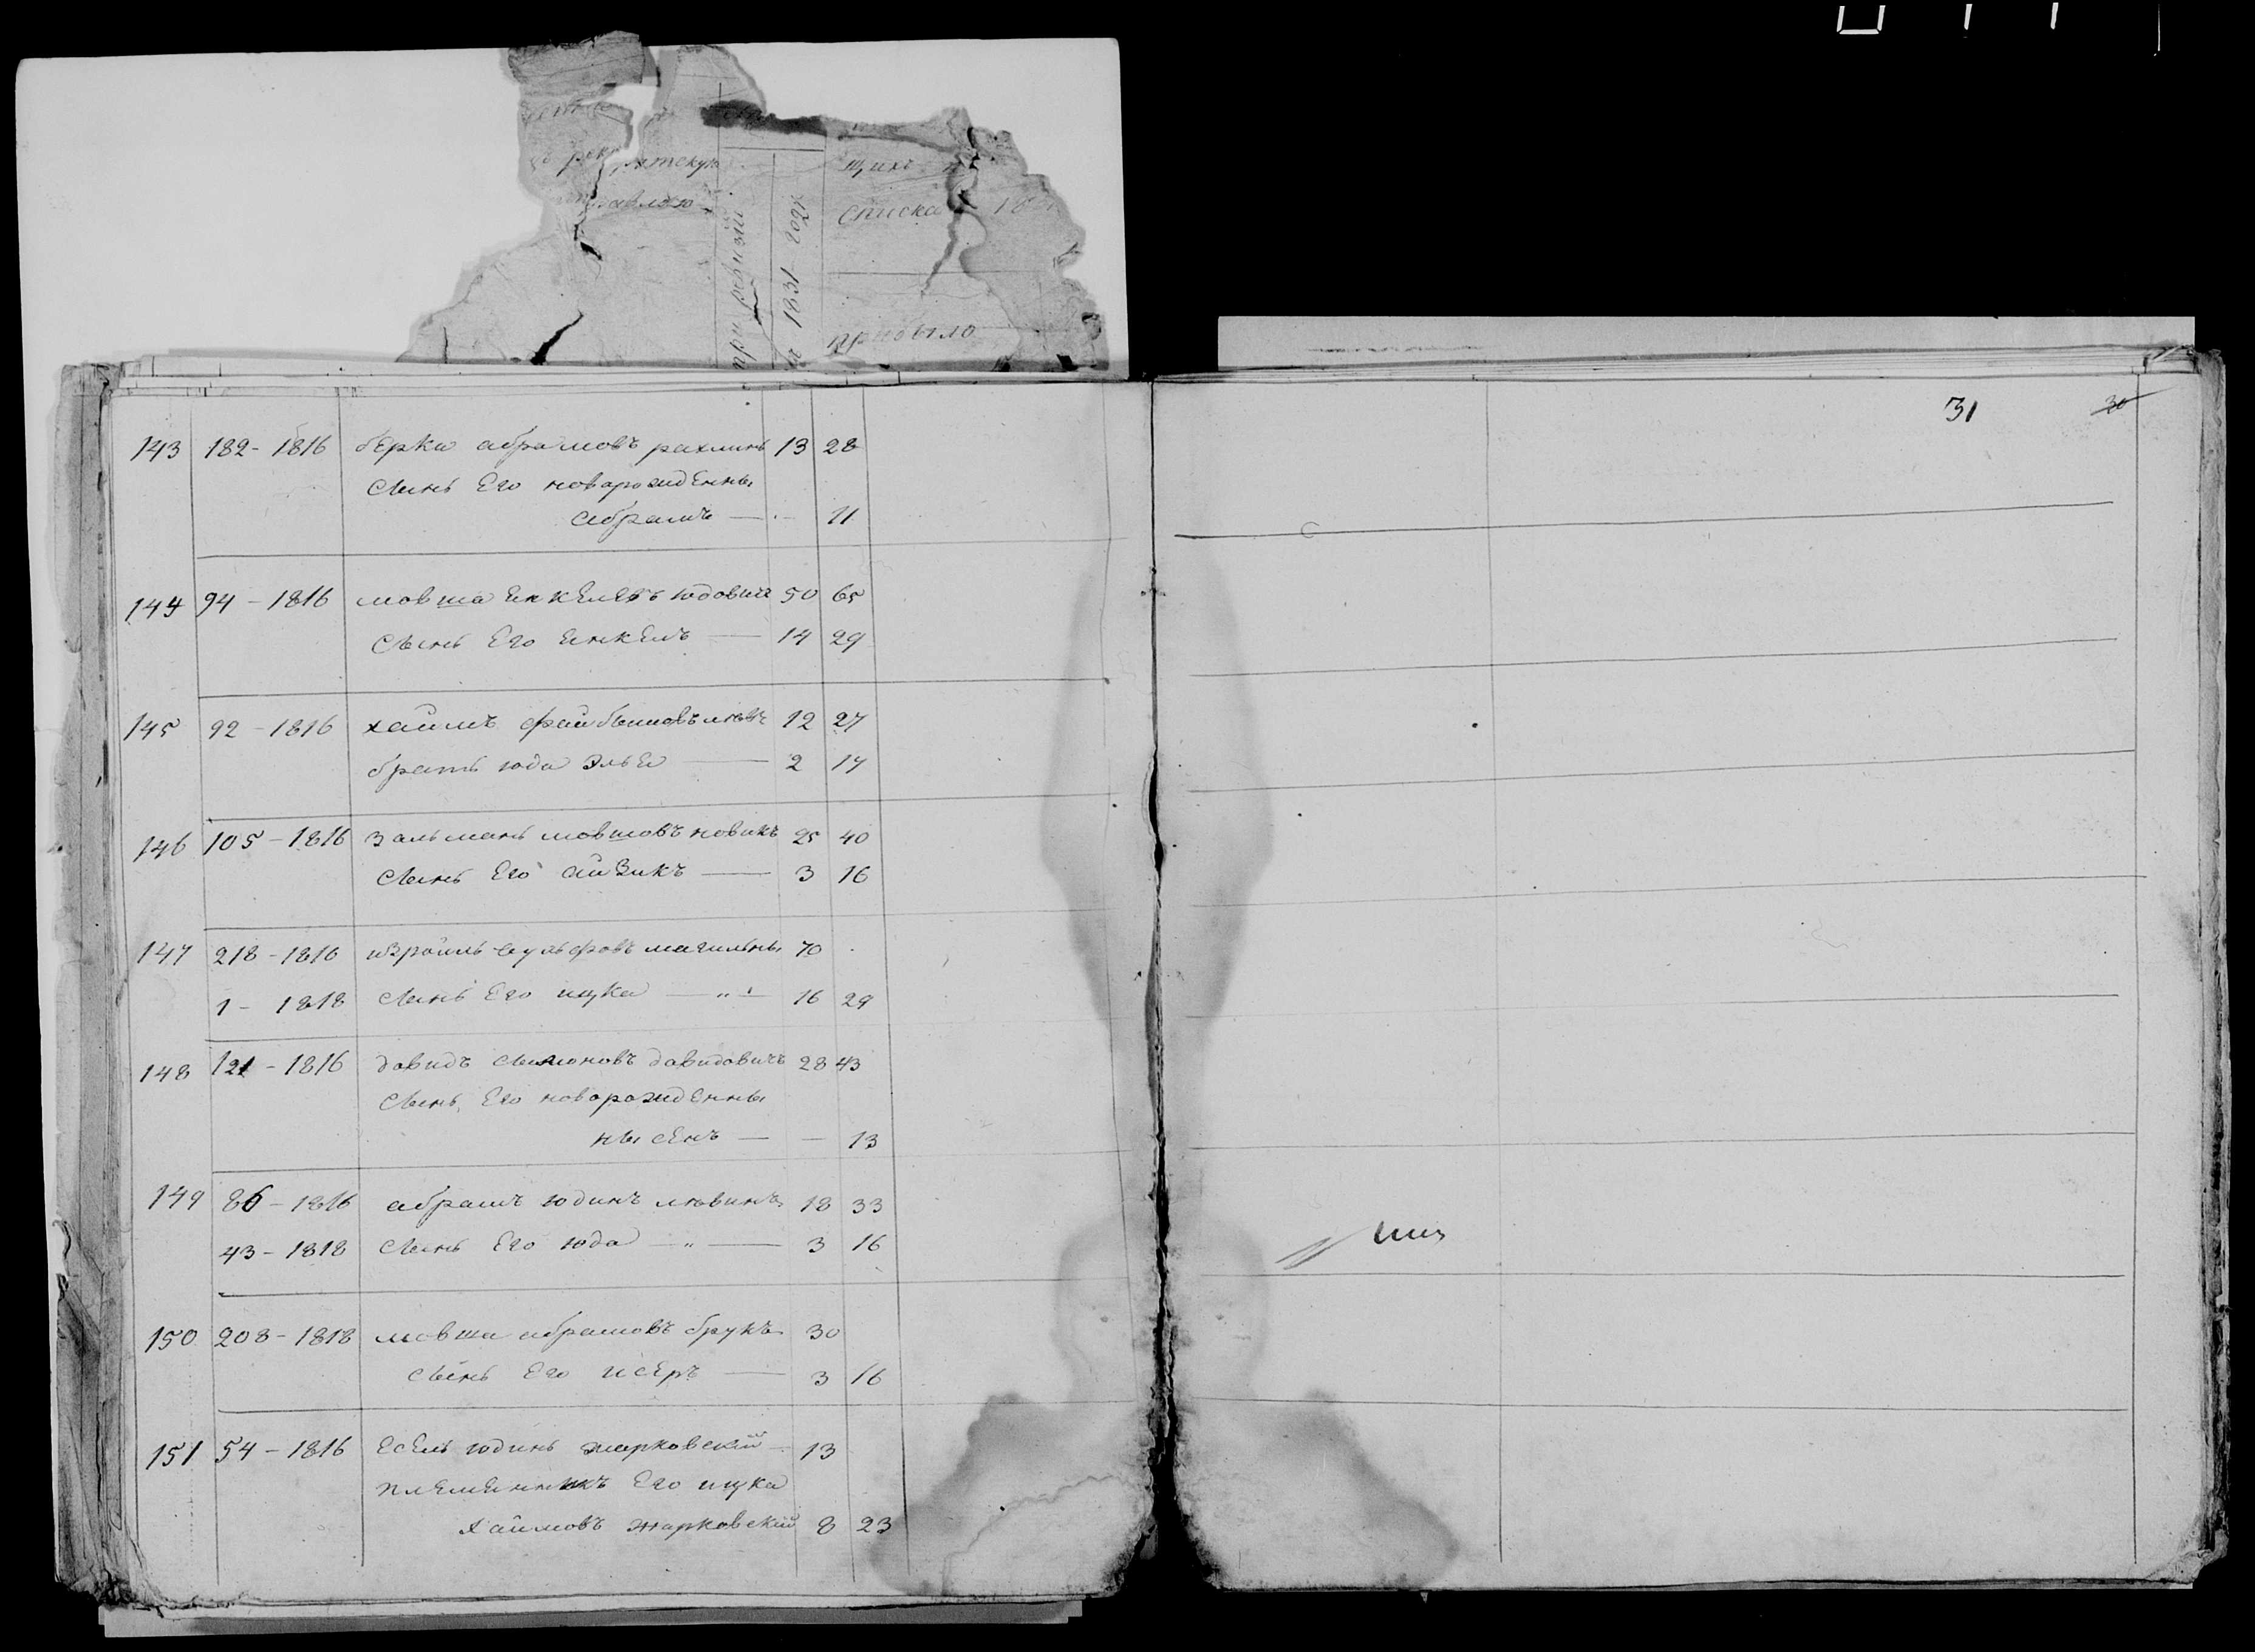 рекрутскую
щихъ
списка
при ревизіи
1831 года
прибыло
31
30
143 182 - 1816 берка абрамовъ рахлинъ 13 28
сынъ Его новарожденны
абрамъ — 11
144 94 - 1816 мовша Енкелевъ юдовичъ 50 65
сынъ Его Енкель — 14 29
145 92 - 1816 хаимъ файбышовъ 12 27
братъ юда Элье — 2 17
146 105 - 1816 Зальманъ мовшовъ новикъ 25 40
сынъ Его айзикъ — 3 16
147 218 - 1816 изроиль вульфовъ магильны 70
1 - 1818 сынъ Его ицка — „ — 16 29
148 121 - 1816 давидъ сымоновъ давидовичъ 28 43
сынъ Его новарожденны
нысенъ — — 13
149 86 - 1816 абрамъ юдинъ левинъ 18 33
43 - 1818 сынъ Его юда — „ — 3 16
150 208 - 1818 мовша абрамовъ брукъ 30
сынъ Его исеръ — 3 16
151 54 - 1816 Есель юдинъ жарковский — 13
племенникъ Его ицка
Хаимовъ жарковский 8 23